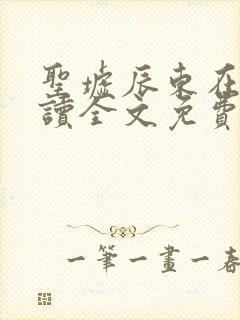 聖墟辰東在
讀全文免費
一筆一畫一春